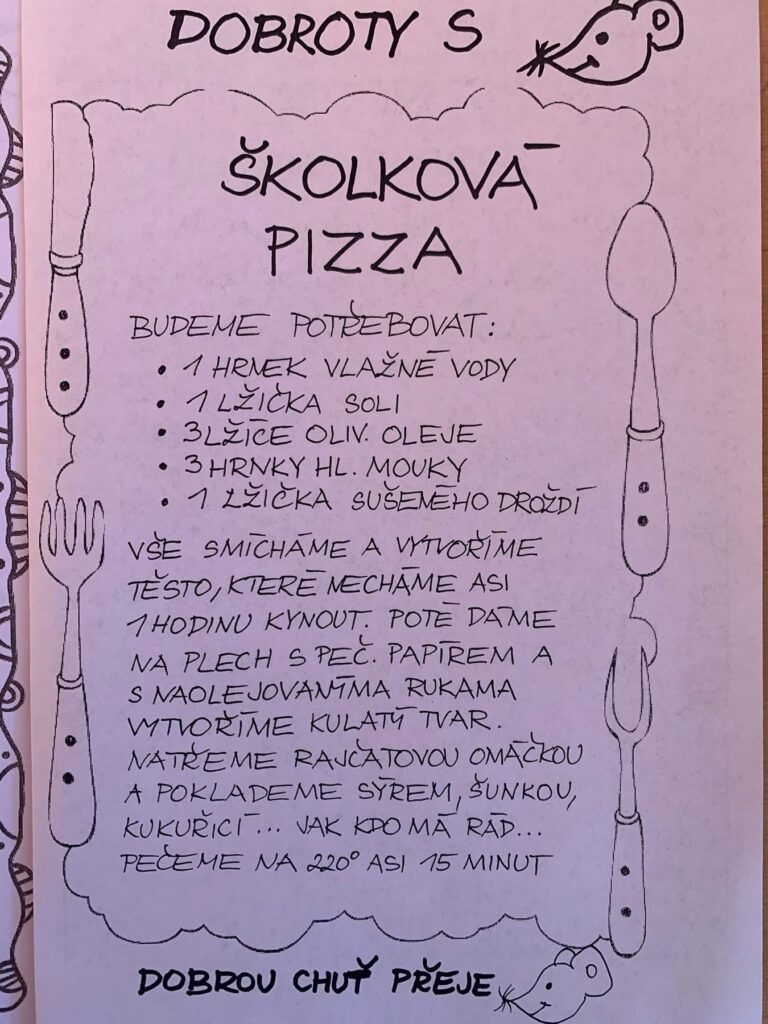 DOBROTY S
ŠKOLKOVÁ
PIZZA
BUDEME POTŘEBOVAT:
• 1 HRNEK VLAŽNÉ VODY
• 1 LŽIČKA SOLI
• 3 LŽÍCE OLIV. OLEJE
• 3 HRNKY HL. MOUKY
• 1 LŽIČKA SUŠENÉHO DROŽDÍ
VŠE SMÍCHÁME A VYTVOŘÍME
TĚSTO, KTERÉ NECHÁME ASI
1 HODINU KYNOUT. POTÉ DÁME
NA PLECH S PEČ. PAPÍREM A
S NAOLEJOVANÝMA RUKAMA
VYTVOŘÍME KULATÝ TVAR.
NATŘEME RAJČATOVOU OMÁČKOU
A POKLADEME SÝREM, ŠUNKOU,
KUKUŘICÍ... JAK KDO MÁ RÁD...
PEČEME NA 220° ASI 15 MINUT
DOBROU CHUŤ PŘEJE